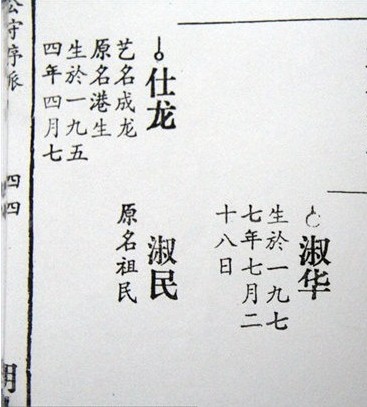 淑华
生於一九七
七年七月二
十八日
仕龙
艺名成龙
原名港生
生於一九五
四年四月七
淑民
原名祖民
公守序派
四四